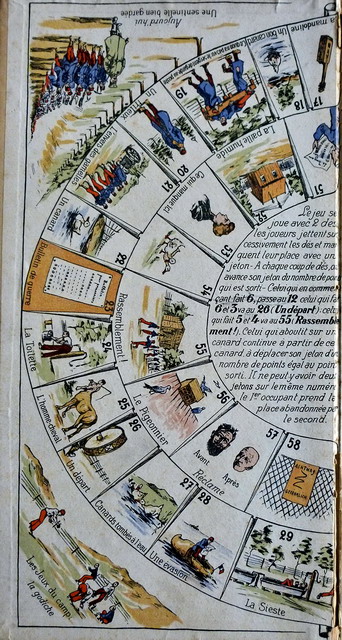 Aujourd'hui
Une sentinelle bien gardée
La mandoline
17
18
Un bon canard
19
20
Un curieux
21
Tenem de gamelles
Un canard
22
Bulletin de guerre
23
La Toilette
24
L'homme-cheval
25
26
Un départ
Canards tombés à l'eau
27
28
Une évasion
29
La Sieste
Les Jeux du camp:
la godiche
51
52
La paille humide
Ce qui manque ici
53
54
Rassemblement!
55
56
Le Pigeonnier
Avant Après
Réclame
57
58
Le jeu se
joue avec 2 dés
les joueurs jettent suc
cessivement les dés et mar
quent leur place avec un
jeton - A chaque coup de dés, on
avance son jeton du nombre de points
qui est sorti - Celui qui en commen
çant fait 6, passe au 12 celui qui fait
6 et 3 va au 26 (Un départ) celui
qui fait 5 et 4 va au 55 (Rassemble
ment!). Celui qui aboutit sur un
canard continue à partir de ce
canard à déplacer son jeton d'un
nombre de points égal au point
sorti. Il ne peut y avoir deux
jetons sur le même numéro
le 1er occupant prend la
place abandonnée par
le second.